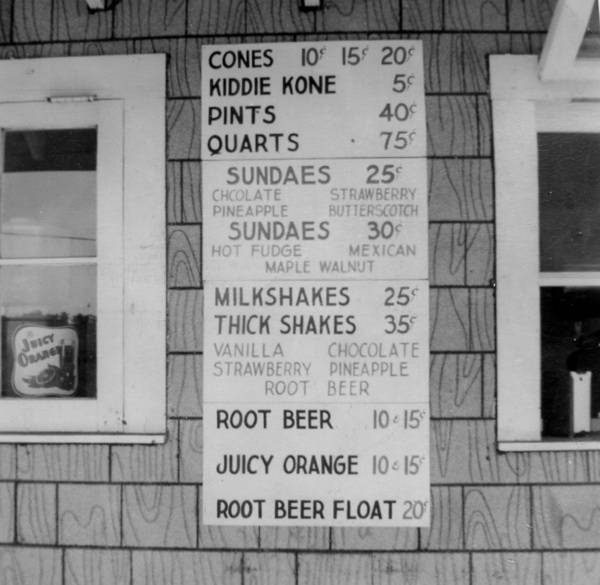 CONES 10¢ 15¢ 20¢
KIDDIE KONE 5¢
PINTS 40¢
QUARTS 75¢
SUNDAES 25¢
CHCOLATE STRAWBERRY
PINEAPPLE BUTTERSCOTCH
SUNDAES 30¢
HOT FUDGE MEXICAN
MAPLE WALNUT
MILKSHAKES 25¢
THICK SHAKES 35¢
VANILLA CHOCOLATE
STRAWBERRY PINEAPPLE
ROOT BEER
ROOT BEER 10 & 15¢
JUICY ORANGE 10 & 15¢
ROOT BEER FLOAT 20¢
"JUICY
ORANGE"